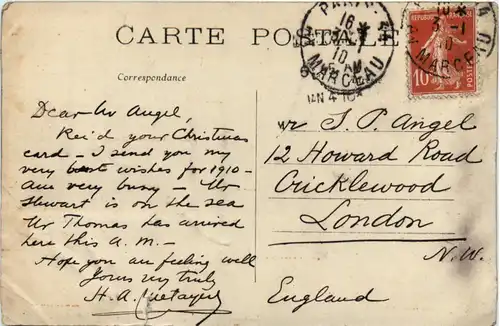 CARTE POSTALE
Correspondance
PARIS
16
3 -1
10
MARCEAU
10 *
3 -1
10
MARCEAU
REPUBLIQUE FRANÇAISE
10
JAN 4 10
Dear Mr Angel,
Rec'd your Christmas
card – I send you my
very best wishes for 1910 –
am very busy – Mr
Stewart is on the sea
Mr Thomas has arrived
here this A.M. –
Hope you are feeling well
Yours very truly
H. A.
Mr S. P. Angel
12 Howard Road
Cricklewood
London
N. W.
England